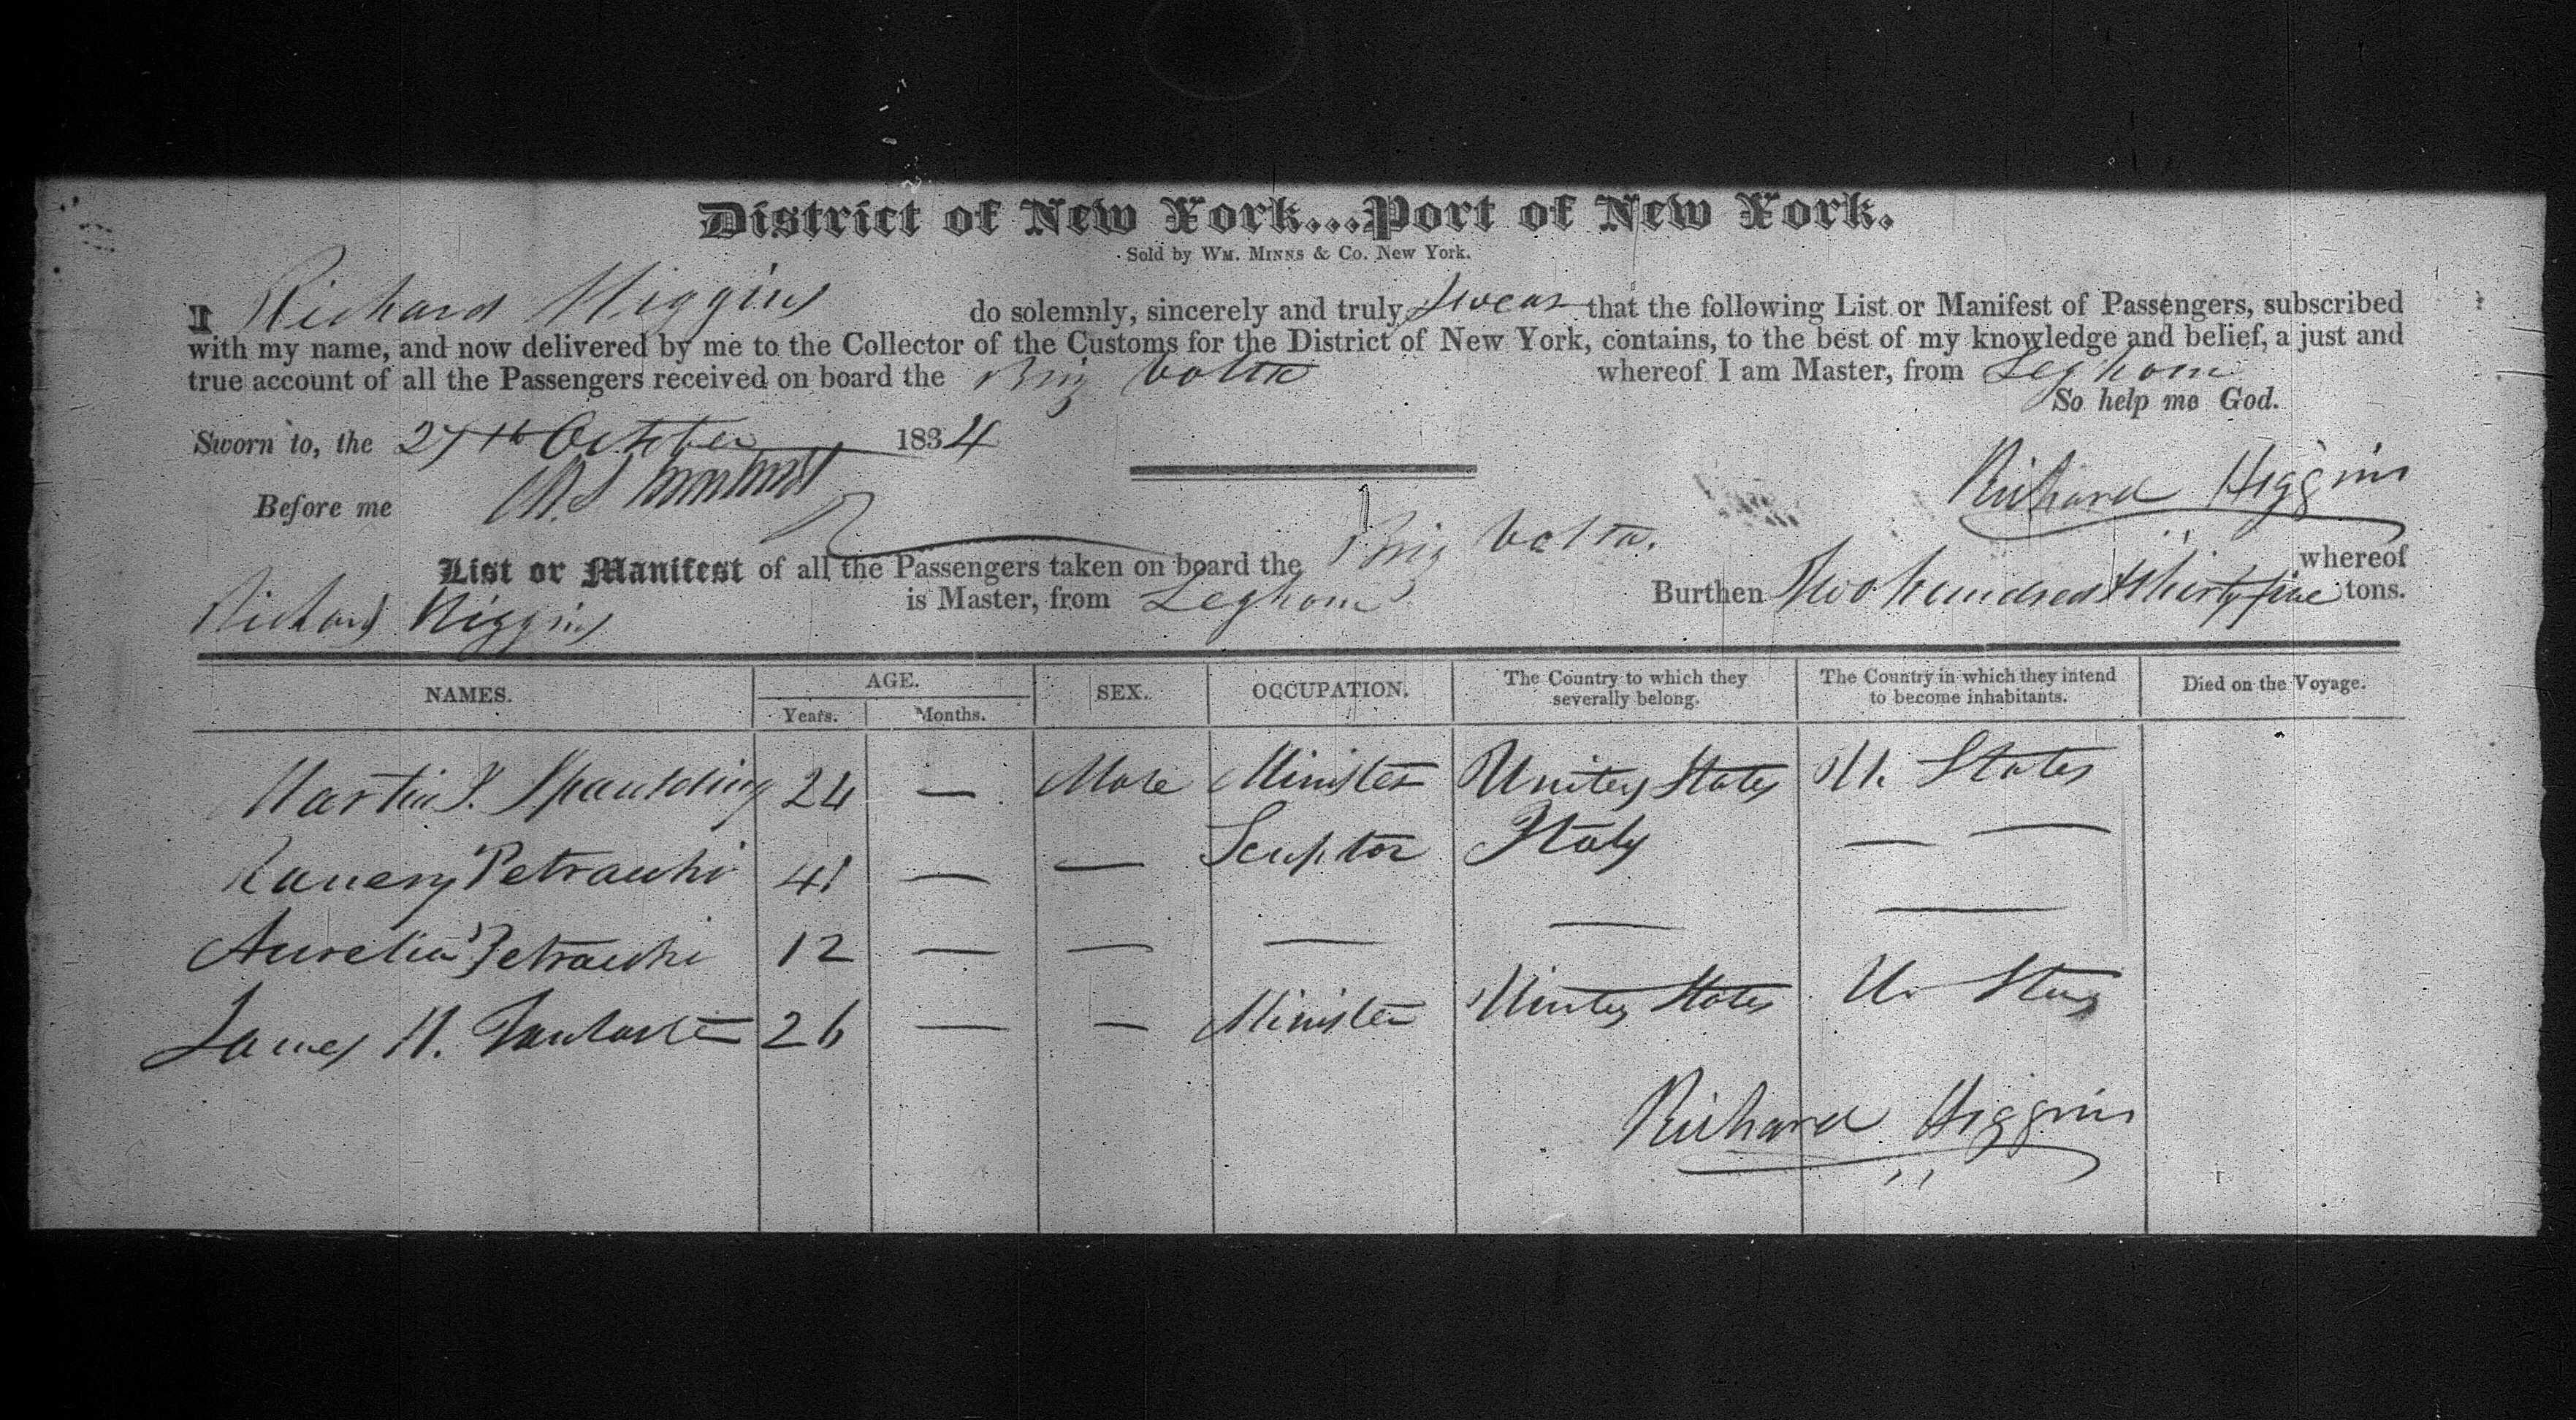 District of New York...Port of New York.
Sold by WM. MINNS & Co. New York.
I Richard Higgins do solemnly, sincerely and truly swear that the following List or Manifest of Passengers, subscribed
with my name, and now delivered by me to the Collector of the Customs for the District of New York, contains, to the best of my knowledge and belief, a just and
true account of all the Passengers received on board the Brig Volta whereof I am Master, from Leghorn
So help me God.
Sworn to, the 27th October 1834
Before me
Richard Higgins
List or Manifest of all the Passengers taken on board the Brig Volta. whereof
Richard Higgins is Master, from Leghorn Burthen Two hundred & thirty five tons.
NAMES. AGE. SEX. OCCUPATION. The Country to which they severally belong. The Country in which they intend to become inhabitants. Died on the Voyage.
Years. Months.
Martin J. Spaulding 24 — Male Minister United States U. States
Petrachi 41 — — Sculptor Italy — —
Aurelia Petrachi 12 — — — — —
James H. 26 — — Minister United States U. States
Richard Higgins